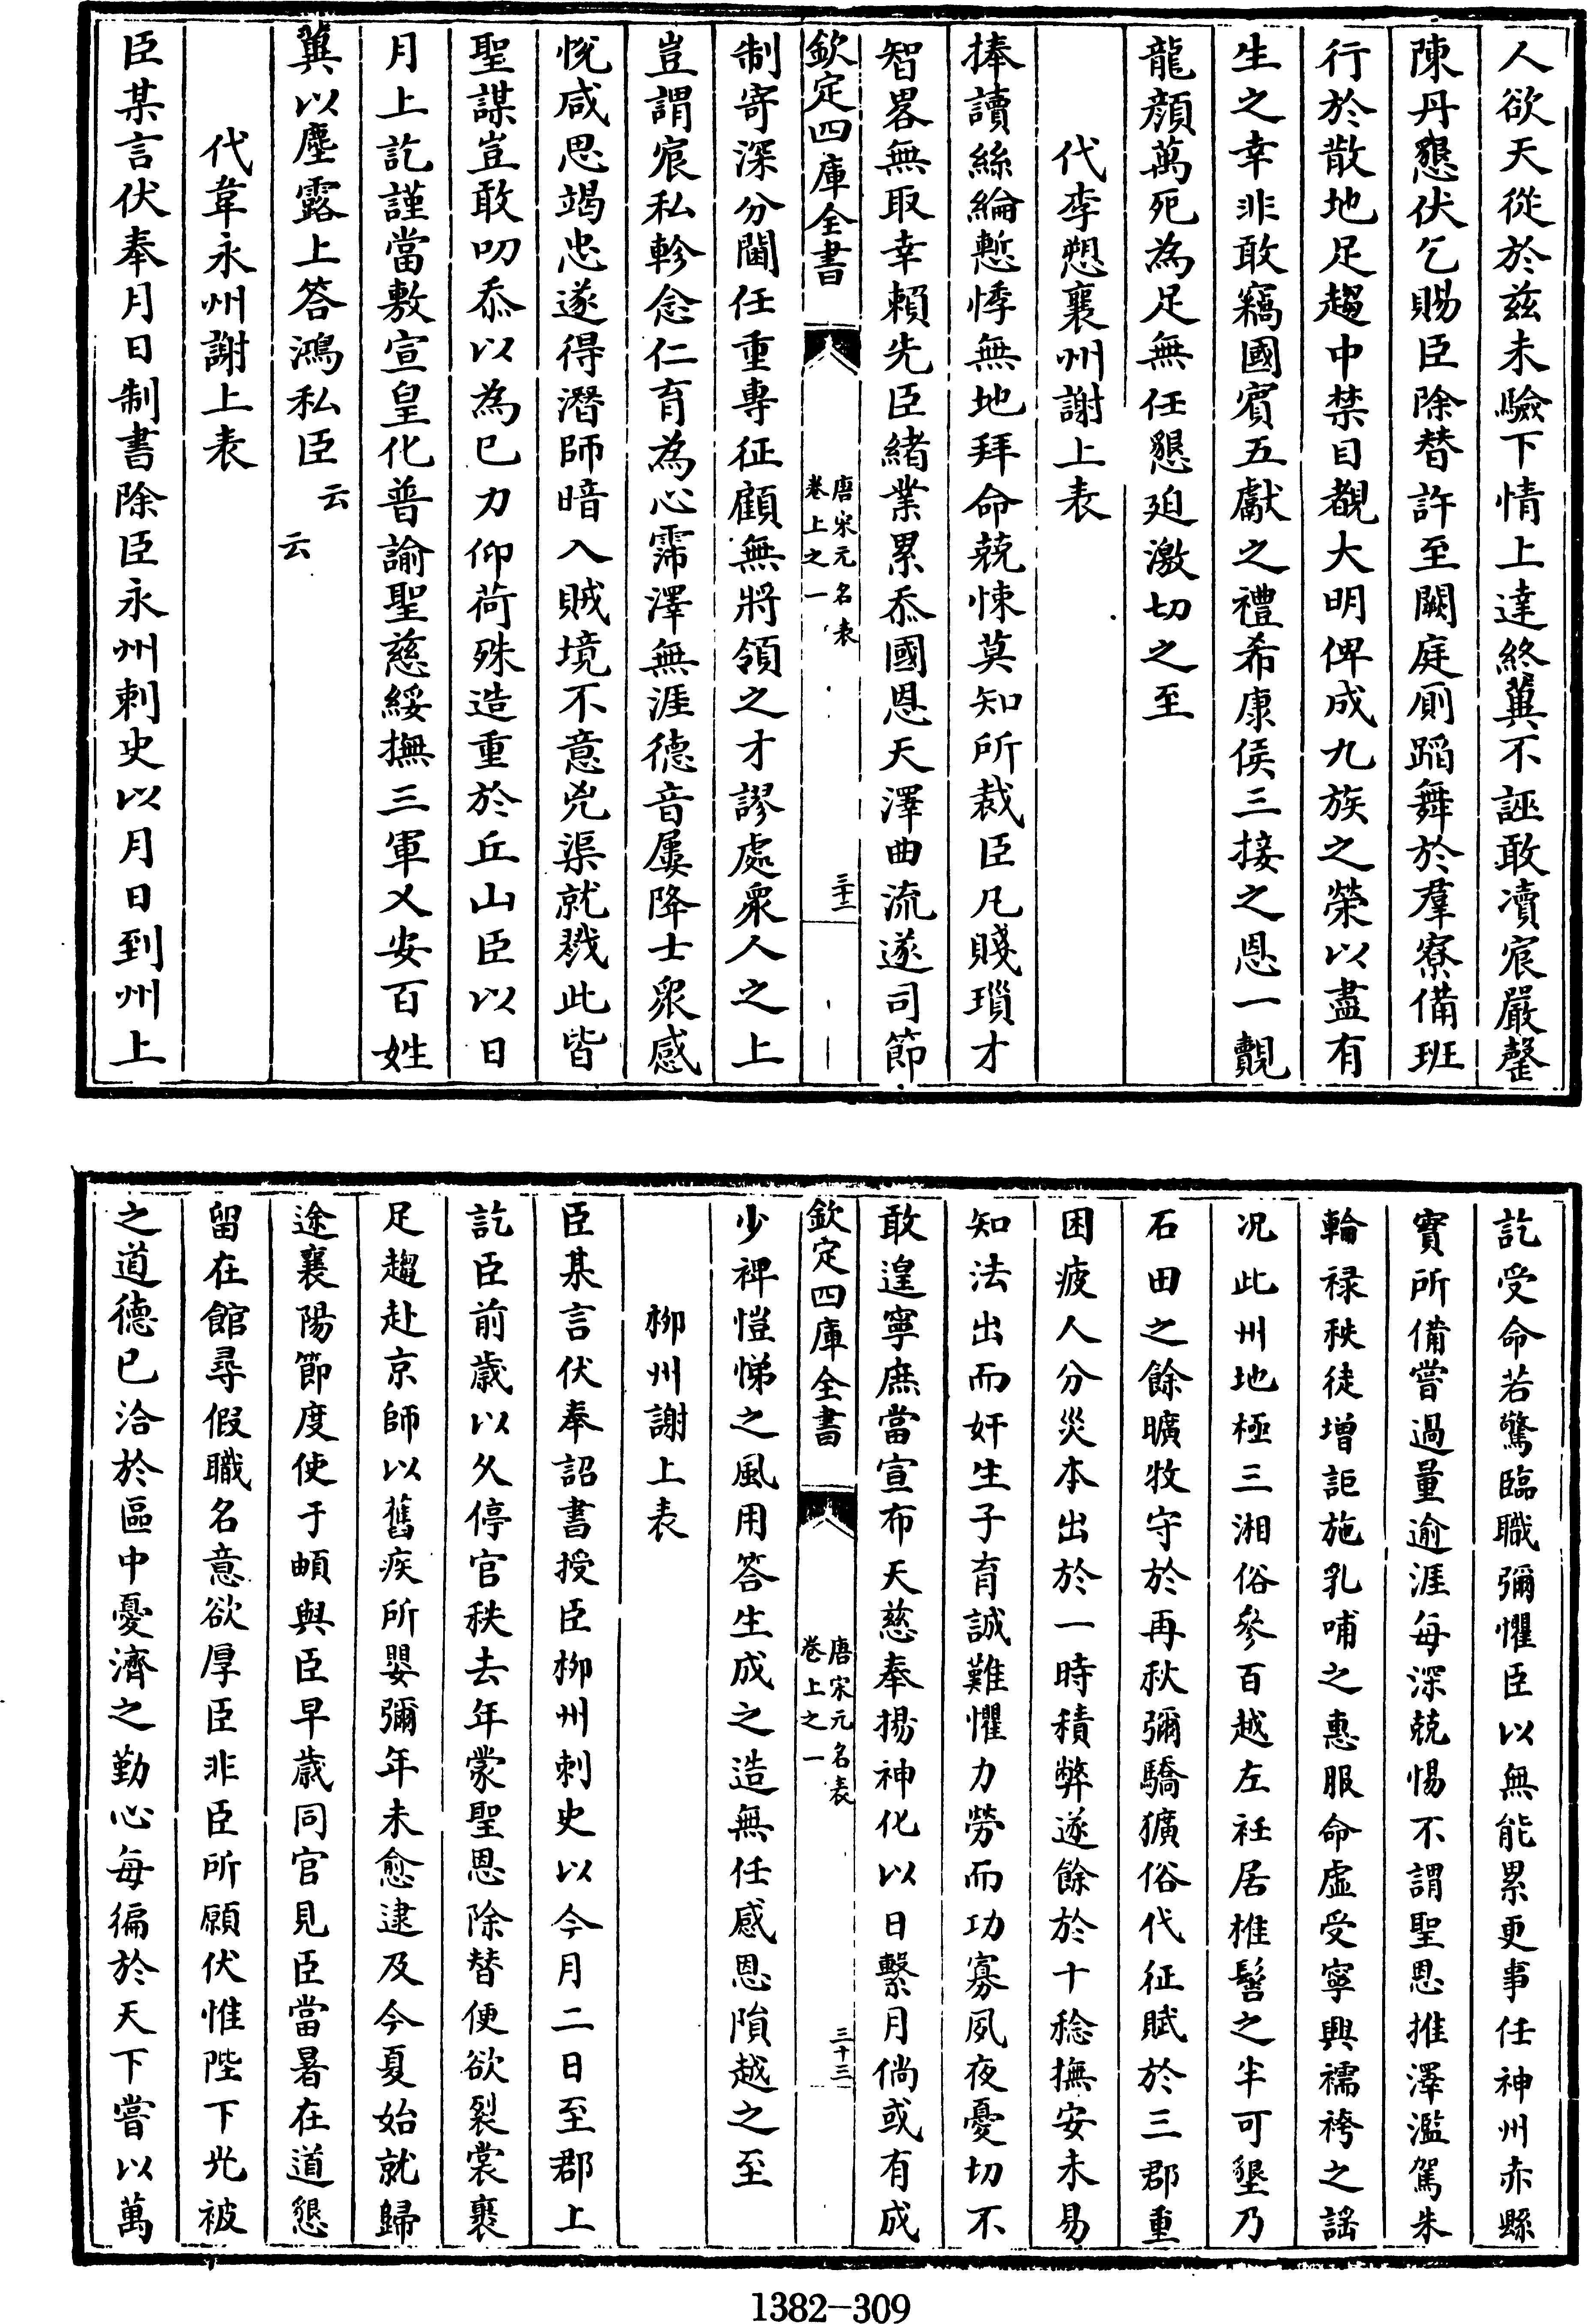 人欲天從於兹未驗下情上達終冀不誣敢凟宸嚴罄
陳丹懇伏乞賜臣除替許至闕庭厠蹈舞於羣寮備班
行於散地足趨中禁目覩大明俾成九族之榮以盡有
生之幸非敢竊國賓五獻之禮希康侯三接之恩一覿
龍顔萬死為足無任懇迫激切之至
代李愬襄州謝上表
捧讀絲綸慙悸無地拜命兢悚莫知所裁臣凡賤瑣才
智畧無取幸賴先臣緒業累忝國恩天澤曲流遂司節
欽定四庫全書
唐宋元名表
卷上之一
三十二
制寄深分閫任重專征顧無將領之才謬處衆人之上
豈謂宸私軫念仁育為心霈澤無涯德音屢降士衆感
悅咸思竭忠遂得潛師暗入賊境不意兇渠就戮此皆
聖謀豈敢叨忝以為已力仰荷殊造重於丘山臣以日
月上訖謹當敷宣皇化普諭聖慈綏撫三軍乂安百姓
冀以塵露上答鴻私臣云云
代韋永州謝上表
臣某言伏奉月日制書除臣永州刺史以月日到州上
訖受命若驚臨職彌懼臣以無能累更事任神州赤縣
實所備嘗過量逾涯每深兢惕不謂聖恩推澤濫駕朱
輪禄秩徒增詎施乳哺之惠服命虚受寧興襦袴之謡
况此州地極三湘俗參百越左衽居椎髻之半可墾乃
石田之餘曠牧守於再秋彌驕獷俗代征賦於三郡重
困疲人分災本出於一時積弊遂餘於十稔撫安未易
知法出而奸生子育誠難懼力勞而功寡夙夜憂切不
敢遑寧庶當宣布天慈奉揚神化以日繫月倘或有成
欽定四庫全書
唐宋元名表
卷上之一
三十三
少裨愷悌之風用答生成之造無任感恩隕越之至
柳州謝上表
臣某言伏奉詔書授臣柳州刺史以今月二日至郡上
訖臣前歲以久停官秩去年蒙聖恩除替便欲裂裳裹
足趨赴京師以舊疾所嬰彌年未愈逮及今夏始就歸
途襄陽節度使于頔與臣早歲同官見臣當暑在道懇
留在館尋假職名意欲厚臣非臣所願伏惟陛下光被
之道德已洽於區中憂濟之勤心每徧於天下嘗以萬
1382-309